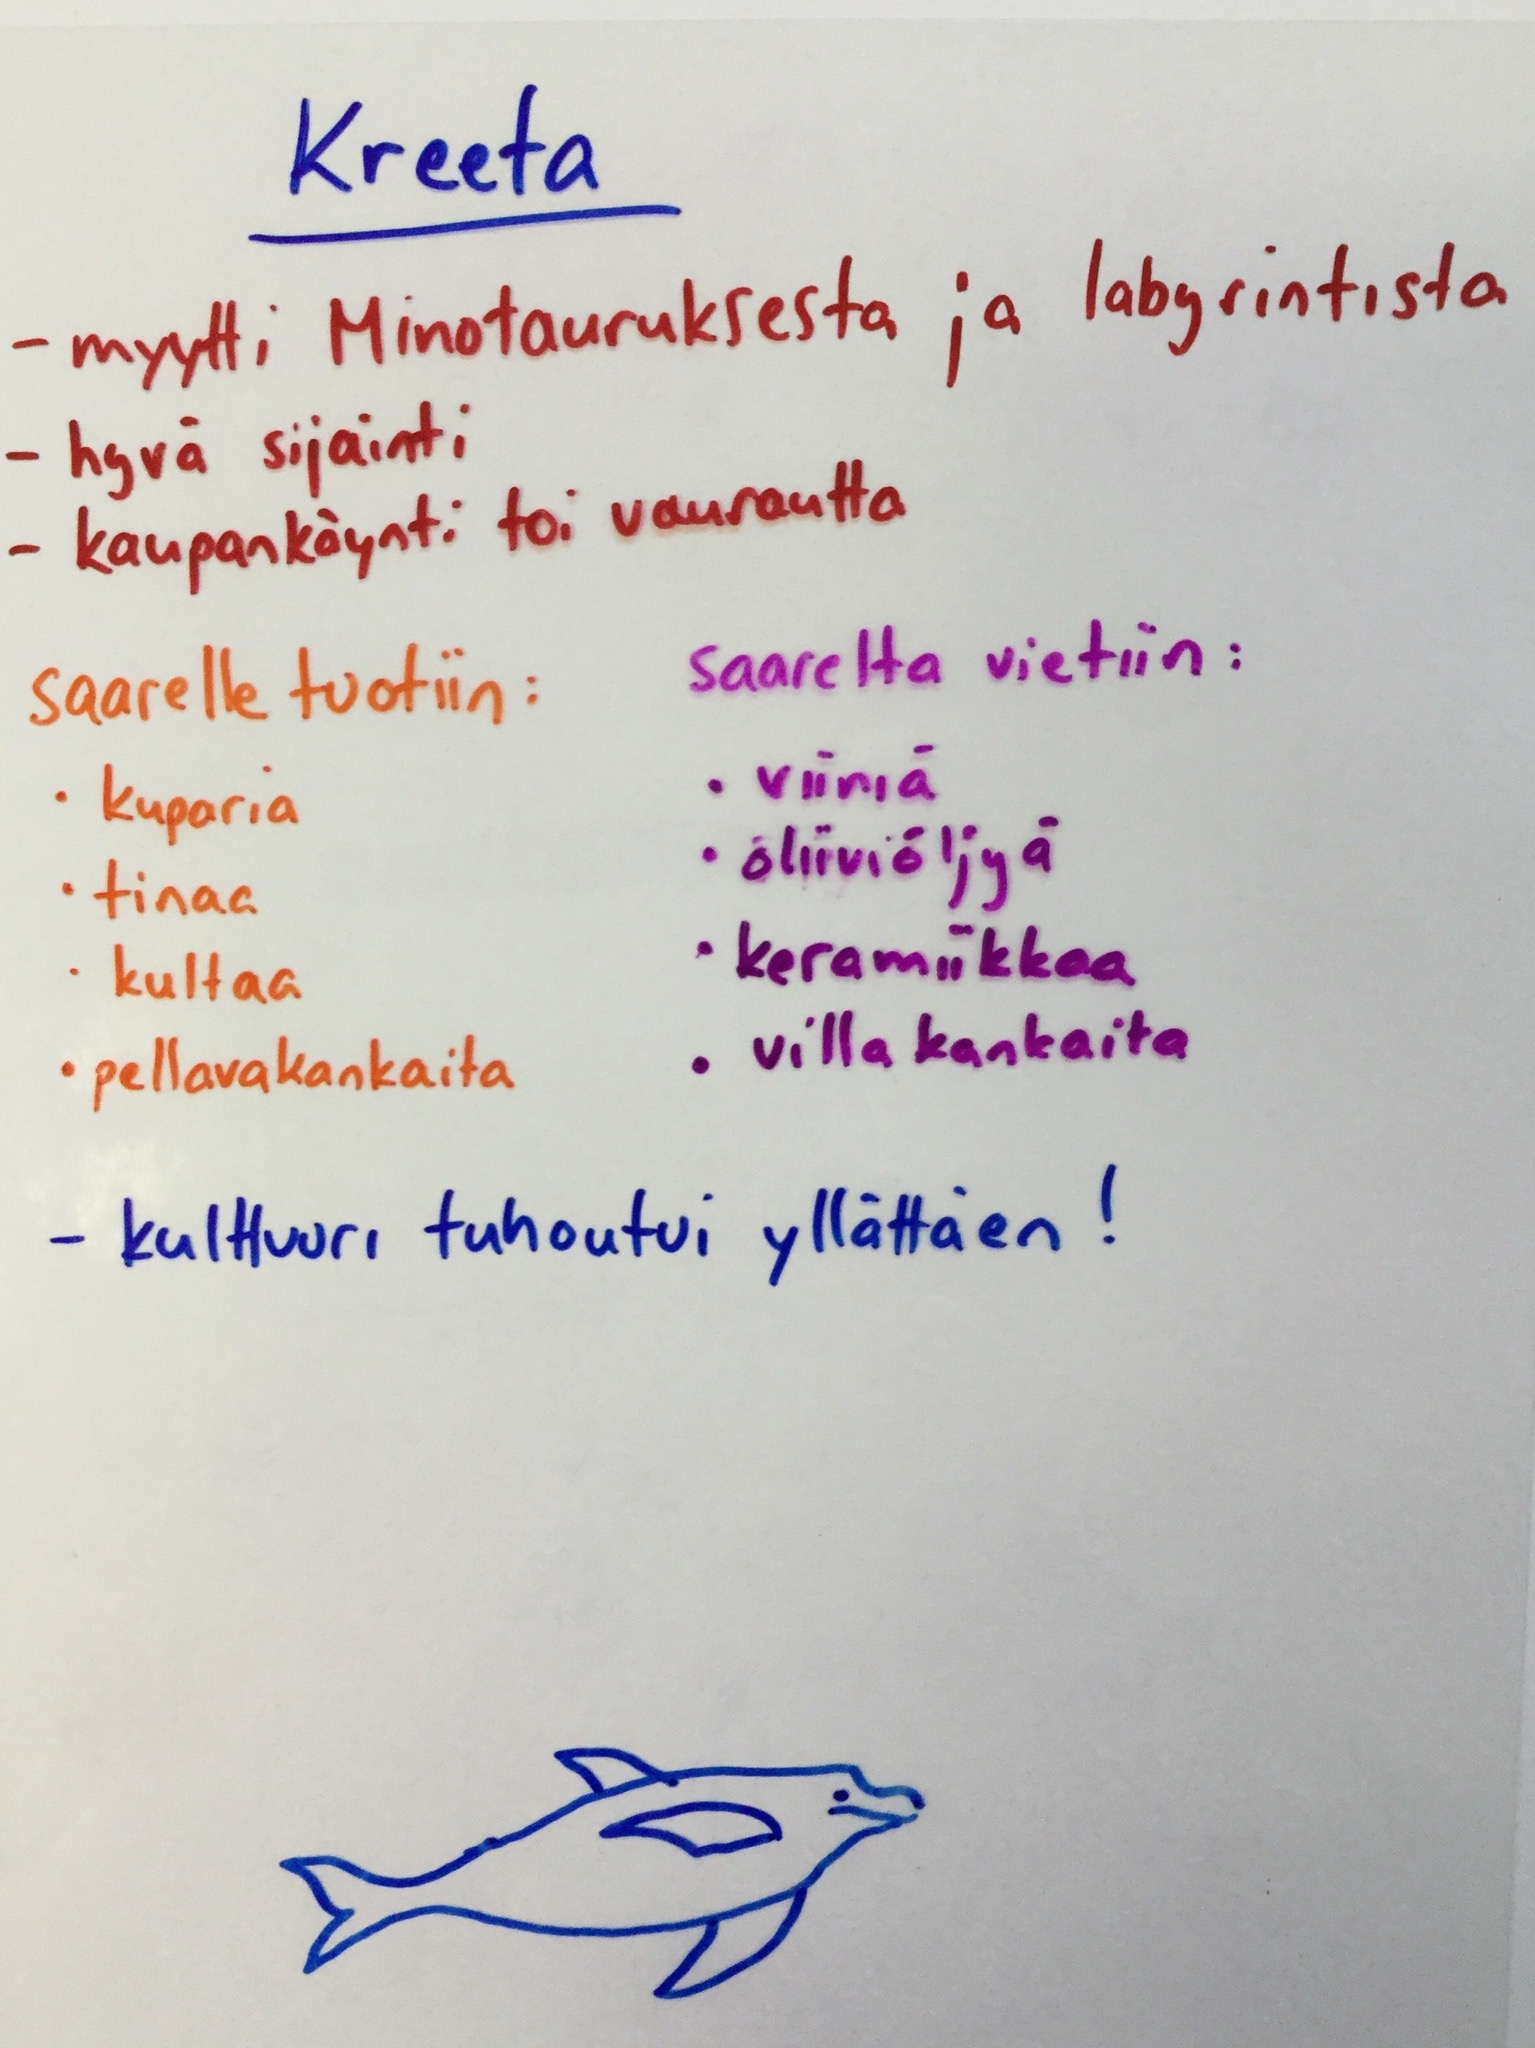 Kreeta
- myytti Minotauruksesta ja labyrintista
- hyvä sijainti
- kaupankäynti toi vaurautta
saarelle tuotiin:
• kuparia
• tinaa
• kultaa
• pellavakankaita
saarelta vietiin:
• viiniä
• oliiviöljyä
• keramiikkaa
• villakankaita
- kulttuuri tuhoutui yllättäen!